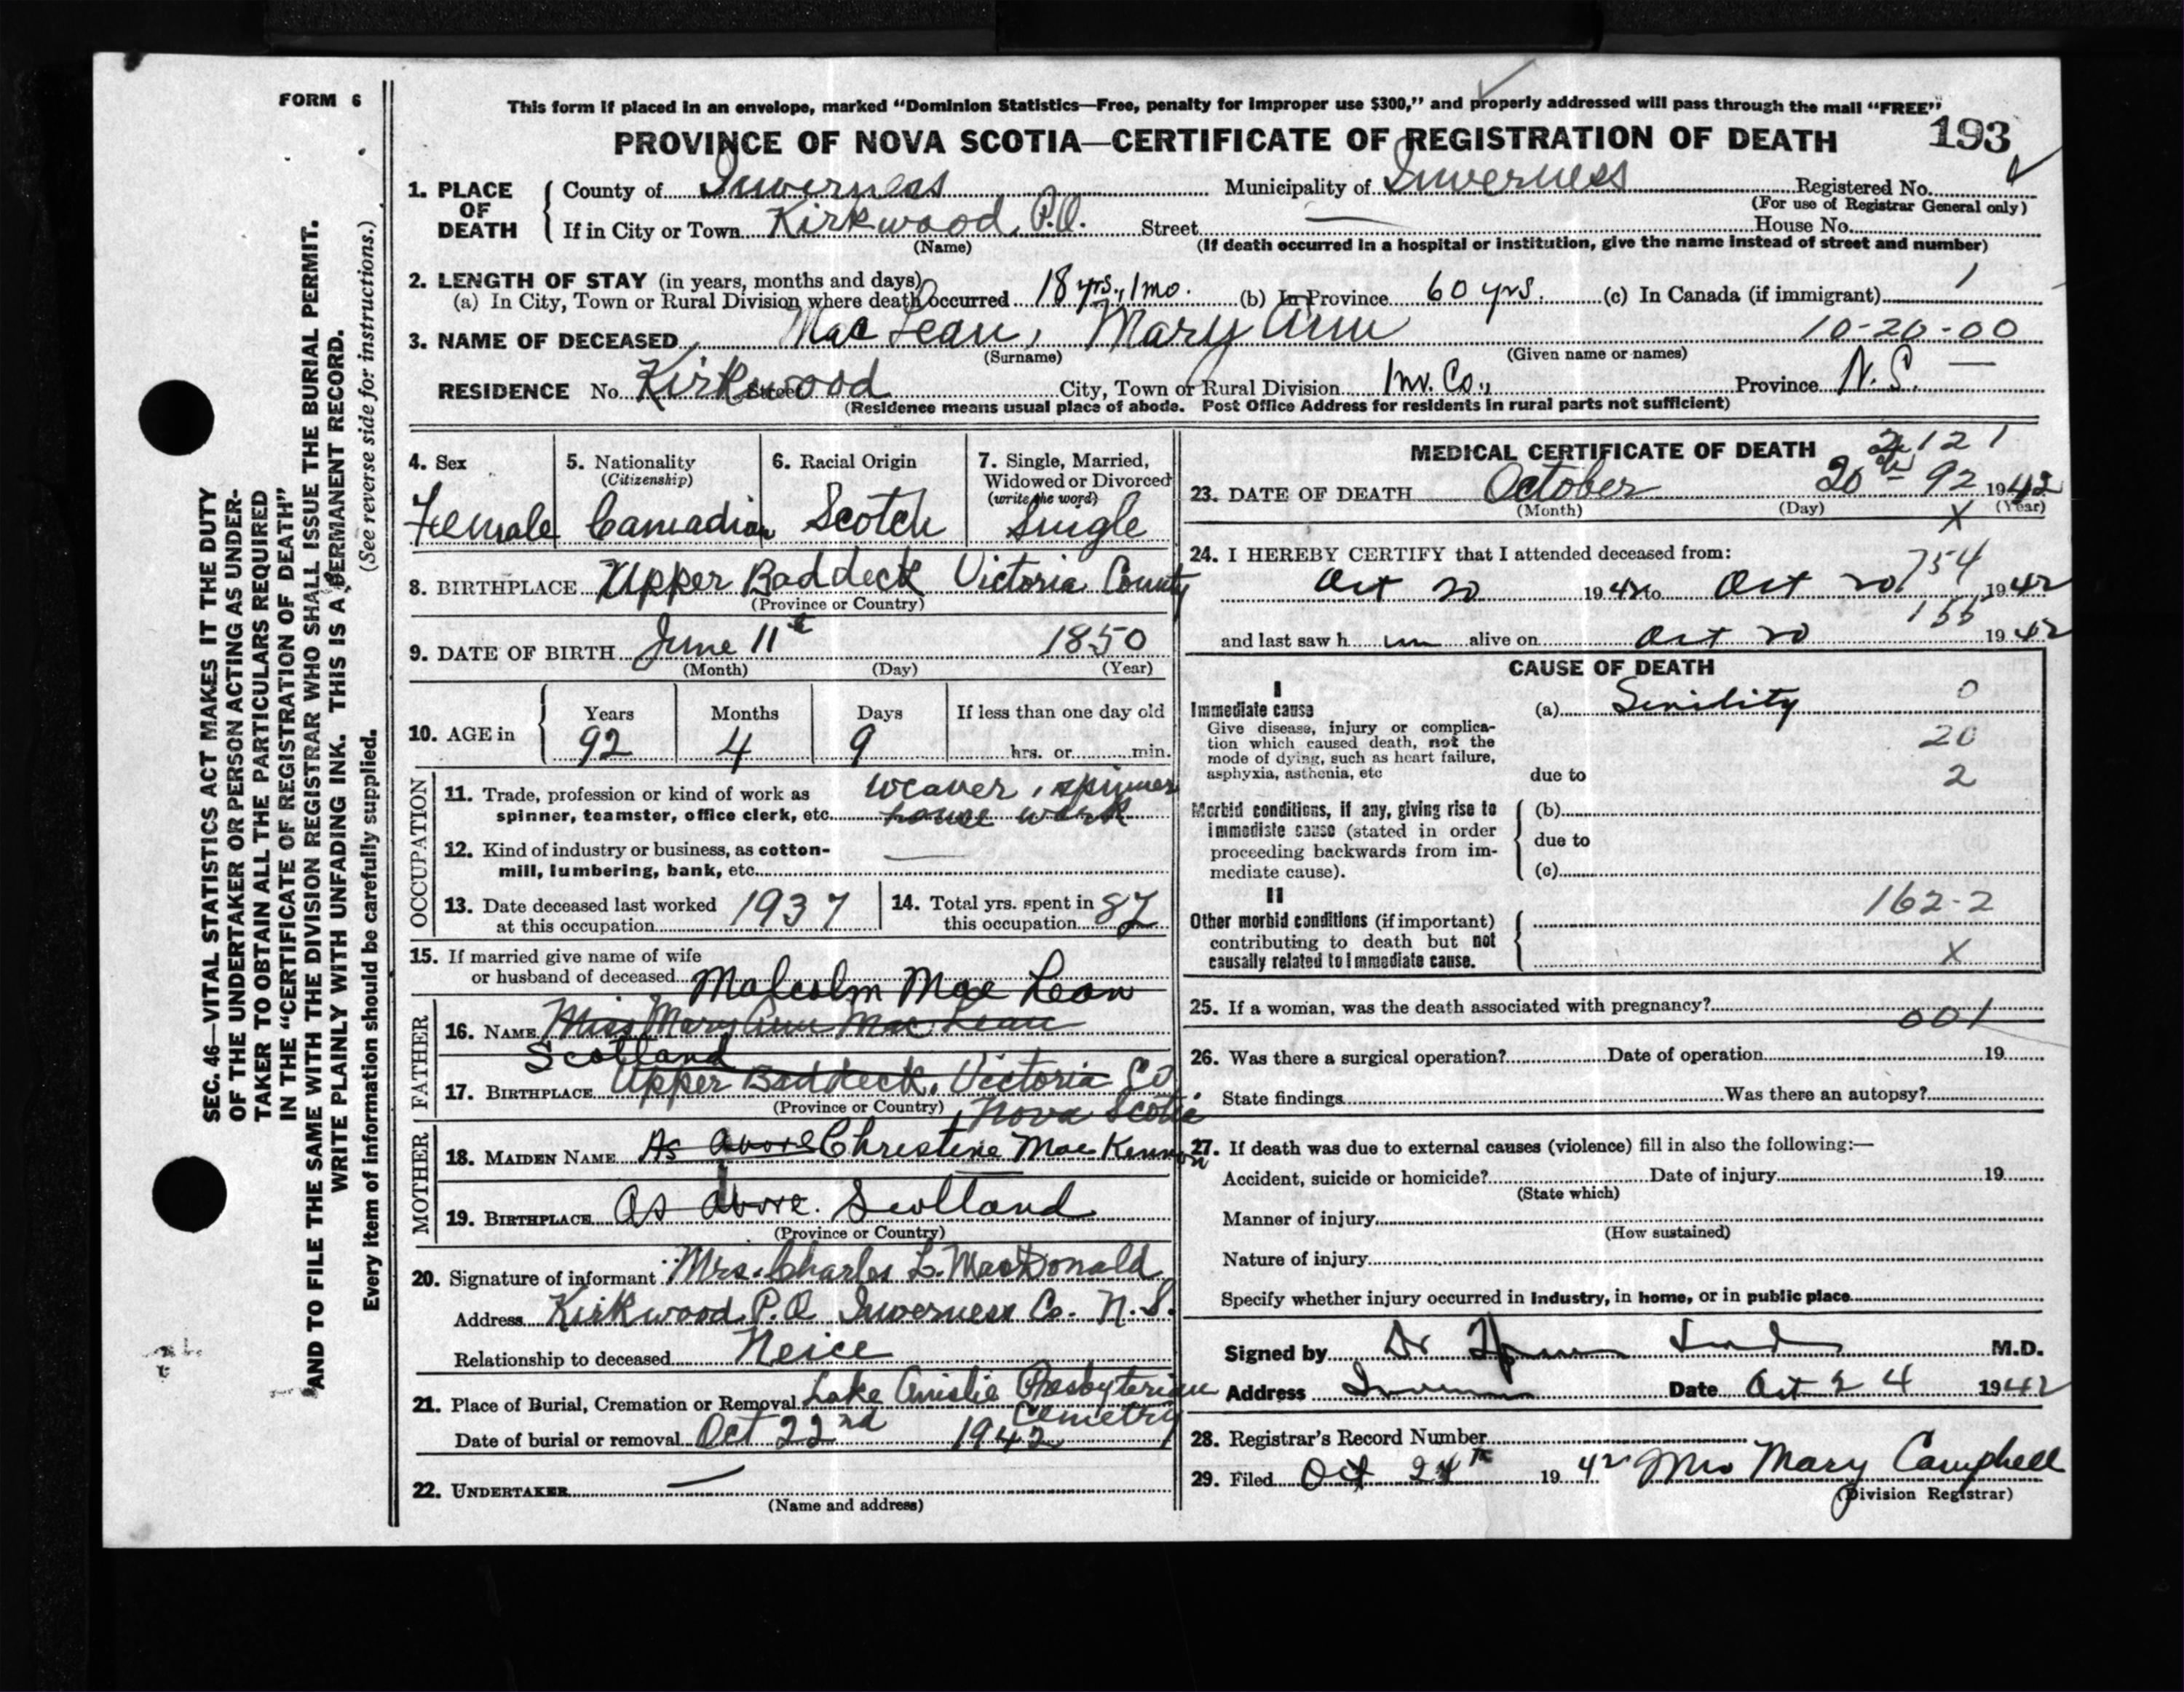 FORM 6
This form if placed in an envelope, marked “Dominion Statistics—Free, penalty for improper use $300,” and properly addressed will pass through the mail “FREE”
PROVINCE OF NOVA SCOTIA—CERTIFICATE OF REGISTRATION OF DEATH 193
1. PLACE OF DEATH County of Inverness Municipality of Inverness Registered No.
(For use of Registrar General only)
If in City or Town Kirkwood P.O. Street — House No.
(Name) (If death occurred in a hospital or institution, give the name instead of street and number)
2. LENGTH OF STAY (in years, months and days)
(a) In City, Town or Rural Division where death occurred 18 yrs., 1 mo. (b) In Province 60 yrs. (c) In Canada (if immigrant) 1
3. NAME OF DECEASED MacLean, Mary Ann 10-20-00
(Surname) (Given name or names)
RESIDENCE No. Kirkwood Street City, Town or Rural Division Inv. Co., Province N.S. —
(Residence means usual place of abode. Post Office Address for residents in rural parts not sufficient)
4. Sex
Female
5. Nationality
(Citizenship)
Canadian
6. Racial Origin
Scotch
7. Single, Married,
Widowed or Divorced
(write the word)
Single
8. BIRTHPLACE Upper Baddeck Victoria County
(Province or Country)
9. DATE OF BIRTH June 11th 1850
(Month) (Day) (Year)
10. AGE in Years Months Days If less than one day old
92 4 9 hrs. or min.
OCCUPATION
11. Trade, profession or kind of work as weaver, spinner
spinner, teamster, office clerk, etc. house work
12. Kind of industry or business, as cotton- —
mill, lumbering, bank, etc.
13. Date deceased last worked 1937
at this occupation
14. Total yrs. spent in 87
this occupation
15. If married give name of wife
or husband of deceased Malcolm MacLean
FATHER
16. NAME Miss Mary Ann MacLean
Scotland
17. BIRTHPLACE Upper Baddeck, Victoria Co
(Province or Country) Nova Scotia
MOTHER
18. MAIDEN NAME As above Christine MacKinnon
19. BIRTHPLACE As above. Scotland
(Province or Country)
20. Signature of informant Mrs. Charles L. MacDonald
Address Kirkwood P.O Inverness Co. N.S.
Relationship to deceased Neice
21. Place of Burial, Cremation or Removal Lake Ainslie Presbyterian
Cemetry
Date of burial or removal Oct 22nd 1942
22. UNDERTAKER —
(Name and address)
MEDICAL CERTIFICATE OF DEATH 2121
23. DATE OF DEATH October 20th 92 1942
(Month) (Day) (Year)
X
24. I HEREBY CERTIFY that I attended deceased from:
754
Oct 20 1942 to Oct 20 1942
155
and last saw h alive on Oct 20 1942
CAUSE OF DEATH
I
Immediate cause
Give disease, injury or complica-
tion which caused death, not the
mode of dying, such as heart failure,
asphyxia, asthenia, etc
(a) Senility 0
20
due to 2
Morbid conditions, if any, giving rise to
immediate cause (stated in order
proceeding backwards from im-
mediate cause).
(b)
due to
(c)
II
162-2
Other morbid conditions (if important)
contributing to death but not
causally related to immediate cause. X
25. If a woman, was the death associated with pregnancy?
001
26. Was there a surgical operation? Date of operation 19
State findings Was there an autopsy?
27. If death was due to external causes (violence) fill in also the following:—
Accident, suicide or homicide? Date of injury 19
(State which)
Manner of injury
(How sustained)
Nature of injury
Specify whether injury occurred in industry, in home, or in public place
Signed by Dr M.D.
Address Date Oct 24 1942
28. Registrar's Record Number
29. Filed Oct 24th 1942 Mrs Mary Campbell
(Division Registrar)
SEC. 46—VITAL STATISTICS ACT MAKES IT THE DUTY
OF THE UNDERTAKER OR PERSON ACTING AS UNDER-
TAKER TO OBTAIN ALL THE PARTICULARS REQUIRED
IN THE “CERTIFICATE OF REGISTRATION OF DEATH”
AND TO FILE THE SAME WITH THE DIVISION REGISTRAR WHO SHALL ISSUE THE BURIAL PERMIT.
WRITE PLAINLY WITH UNFADING INK. THIS IS A PERMANENT RECORD.
Every item of information should be carefully supplied. (See reverse side for instructions.)